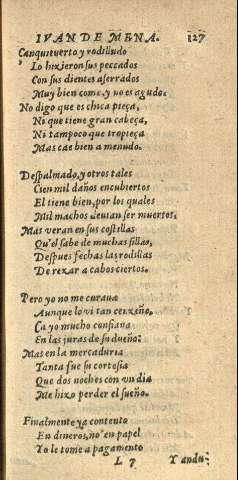 IVAN DE MENA. 127
Canquituerto y rodilludo
Lo hizieron sus peccados
Con sus dientes aserrados
Muy bien come, y no es agudo.
No digo que es chica pieça,
Ni que tiene gran cabeça,
Ni tampoco que tropieça
Mas cae bien a menudo.
Despalmado, y otros tales
Cien mil daños encubiertos
El tiene bien, por los quales
Mil machos deuian ser muertos.
Mas veran en sus costillas
Qu'el sabe de muchas sillas,
Despues fechas las rodillas
De rezar a cabos ciertos.
Pero yo no me curaua
Aunque lo vi tan cenzeño.
Ca yo mucho confiaua
En las juras de su dueño:
Mas en la mercaduria
Tanta fue su cortesia
Que dos noches con vn dia
Me hizo perder el sueño.
Finalmente ya contento
En dineros, no en papel
Yo le tome a pagamento
L 7 Y andu-